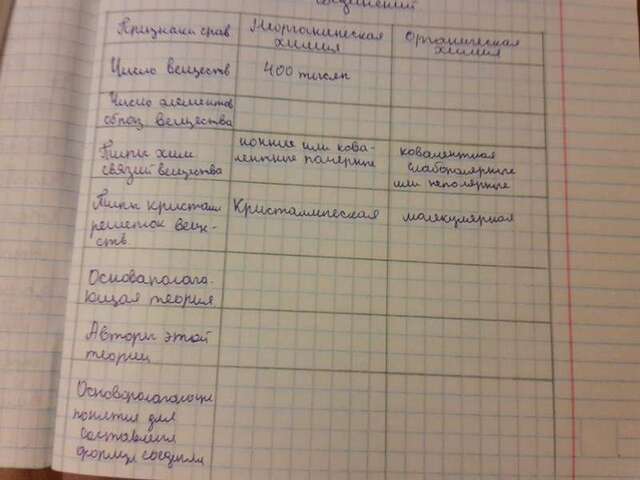 соединений
Признаки срав
Неорганическая
химия
Органическая
химия
Число веществ
400 тысяч
Число элементов
образ вещества
Типы хим
связей вещества
ионные или кова-
лентные полярные
ковалентная
слабополярные
или неполярные
Типы кристалл
решеток вещ-
ств.
Кристаллическая
молекулярная
Основаполага-
ющая теория
Авторы этой
теории
понятия для
составления
формул